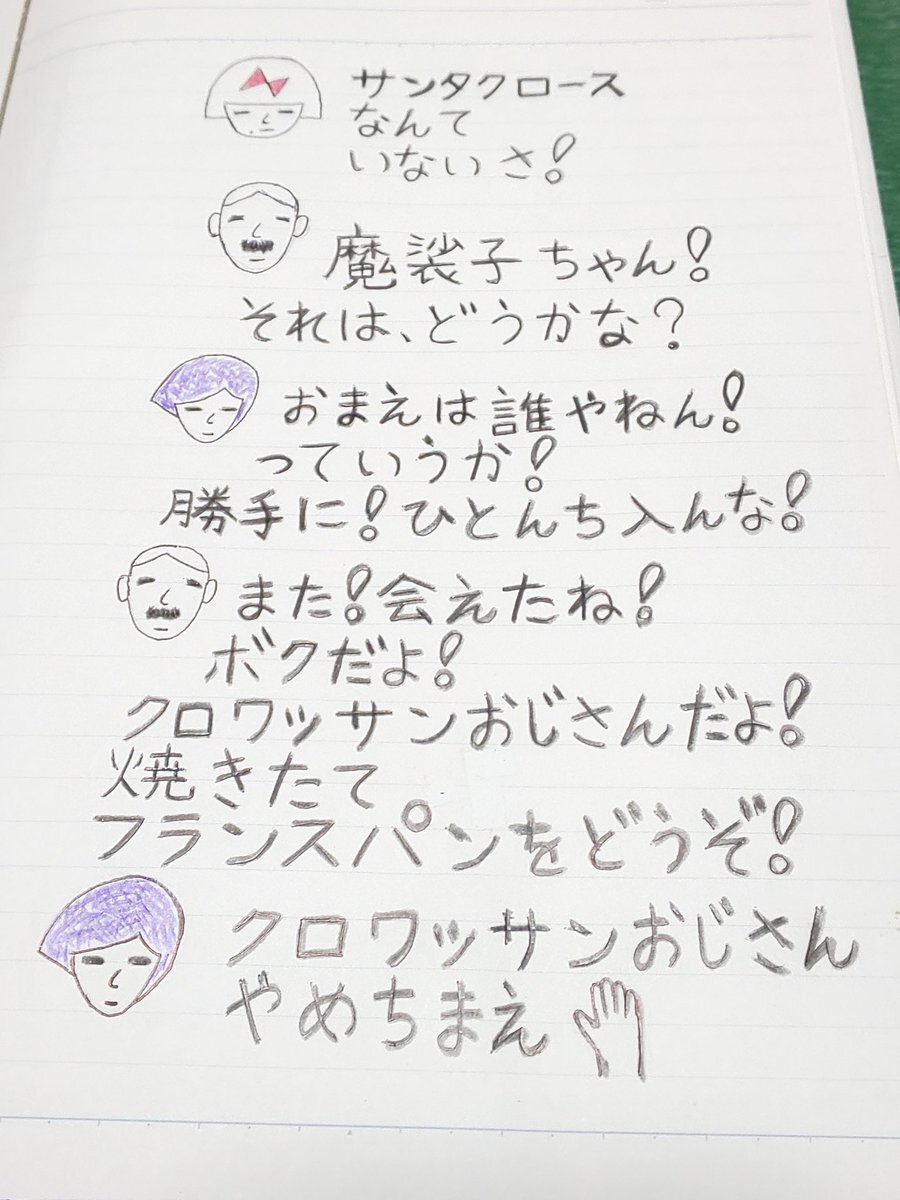 サンタクロース
なんて
いないさ!
魔袋子ちゃん!
それは、どうかな?
おまえは誰やねん!
っていうか!
勝手に!ひとんち入んな!
また!会えたね!
ボクだよ!
クロワッサンおじさんだよ!
焼きたて
フランスパンをどうぞ!
クロワッサンおじさん
やめちまえ